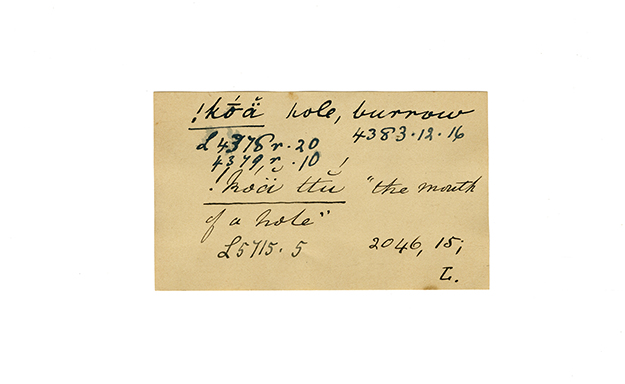 !kṓä̆ hole, burrow
L 4378 r. 20 4383.12.16
4379 r. .10
!kóä̆ ttŭ́ "the mouth
of a hole"
L 5715. 5 2046, 15;
L.